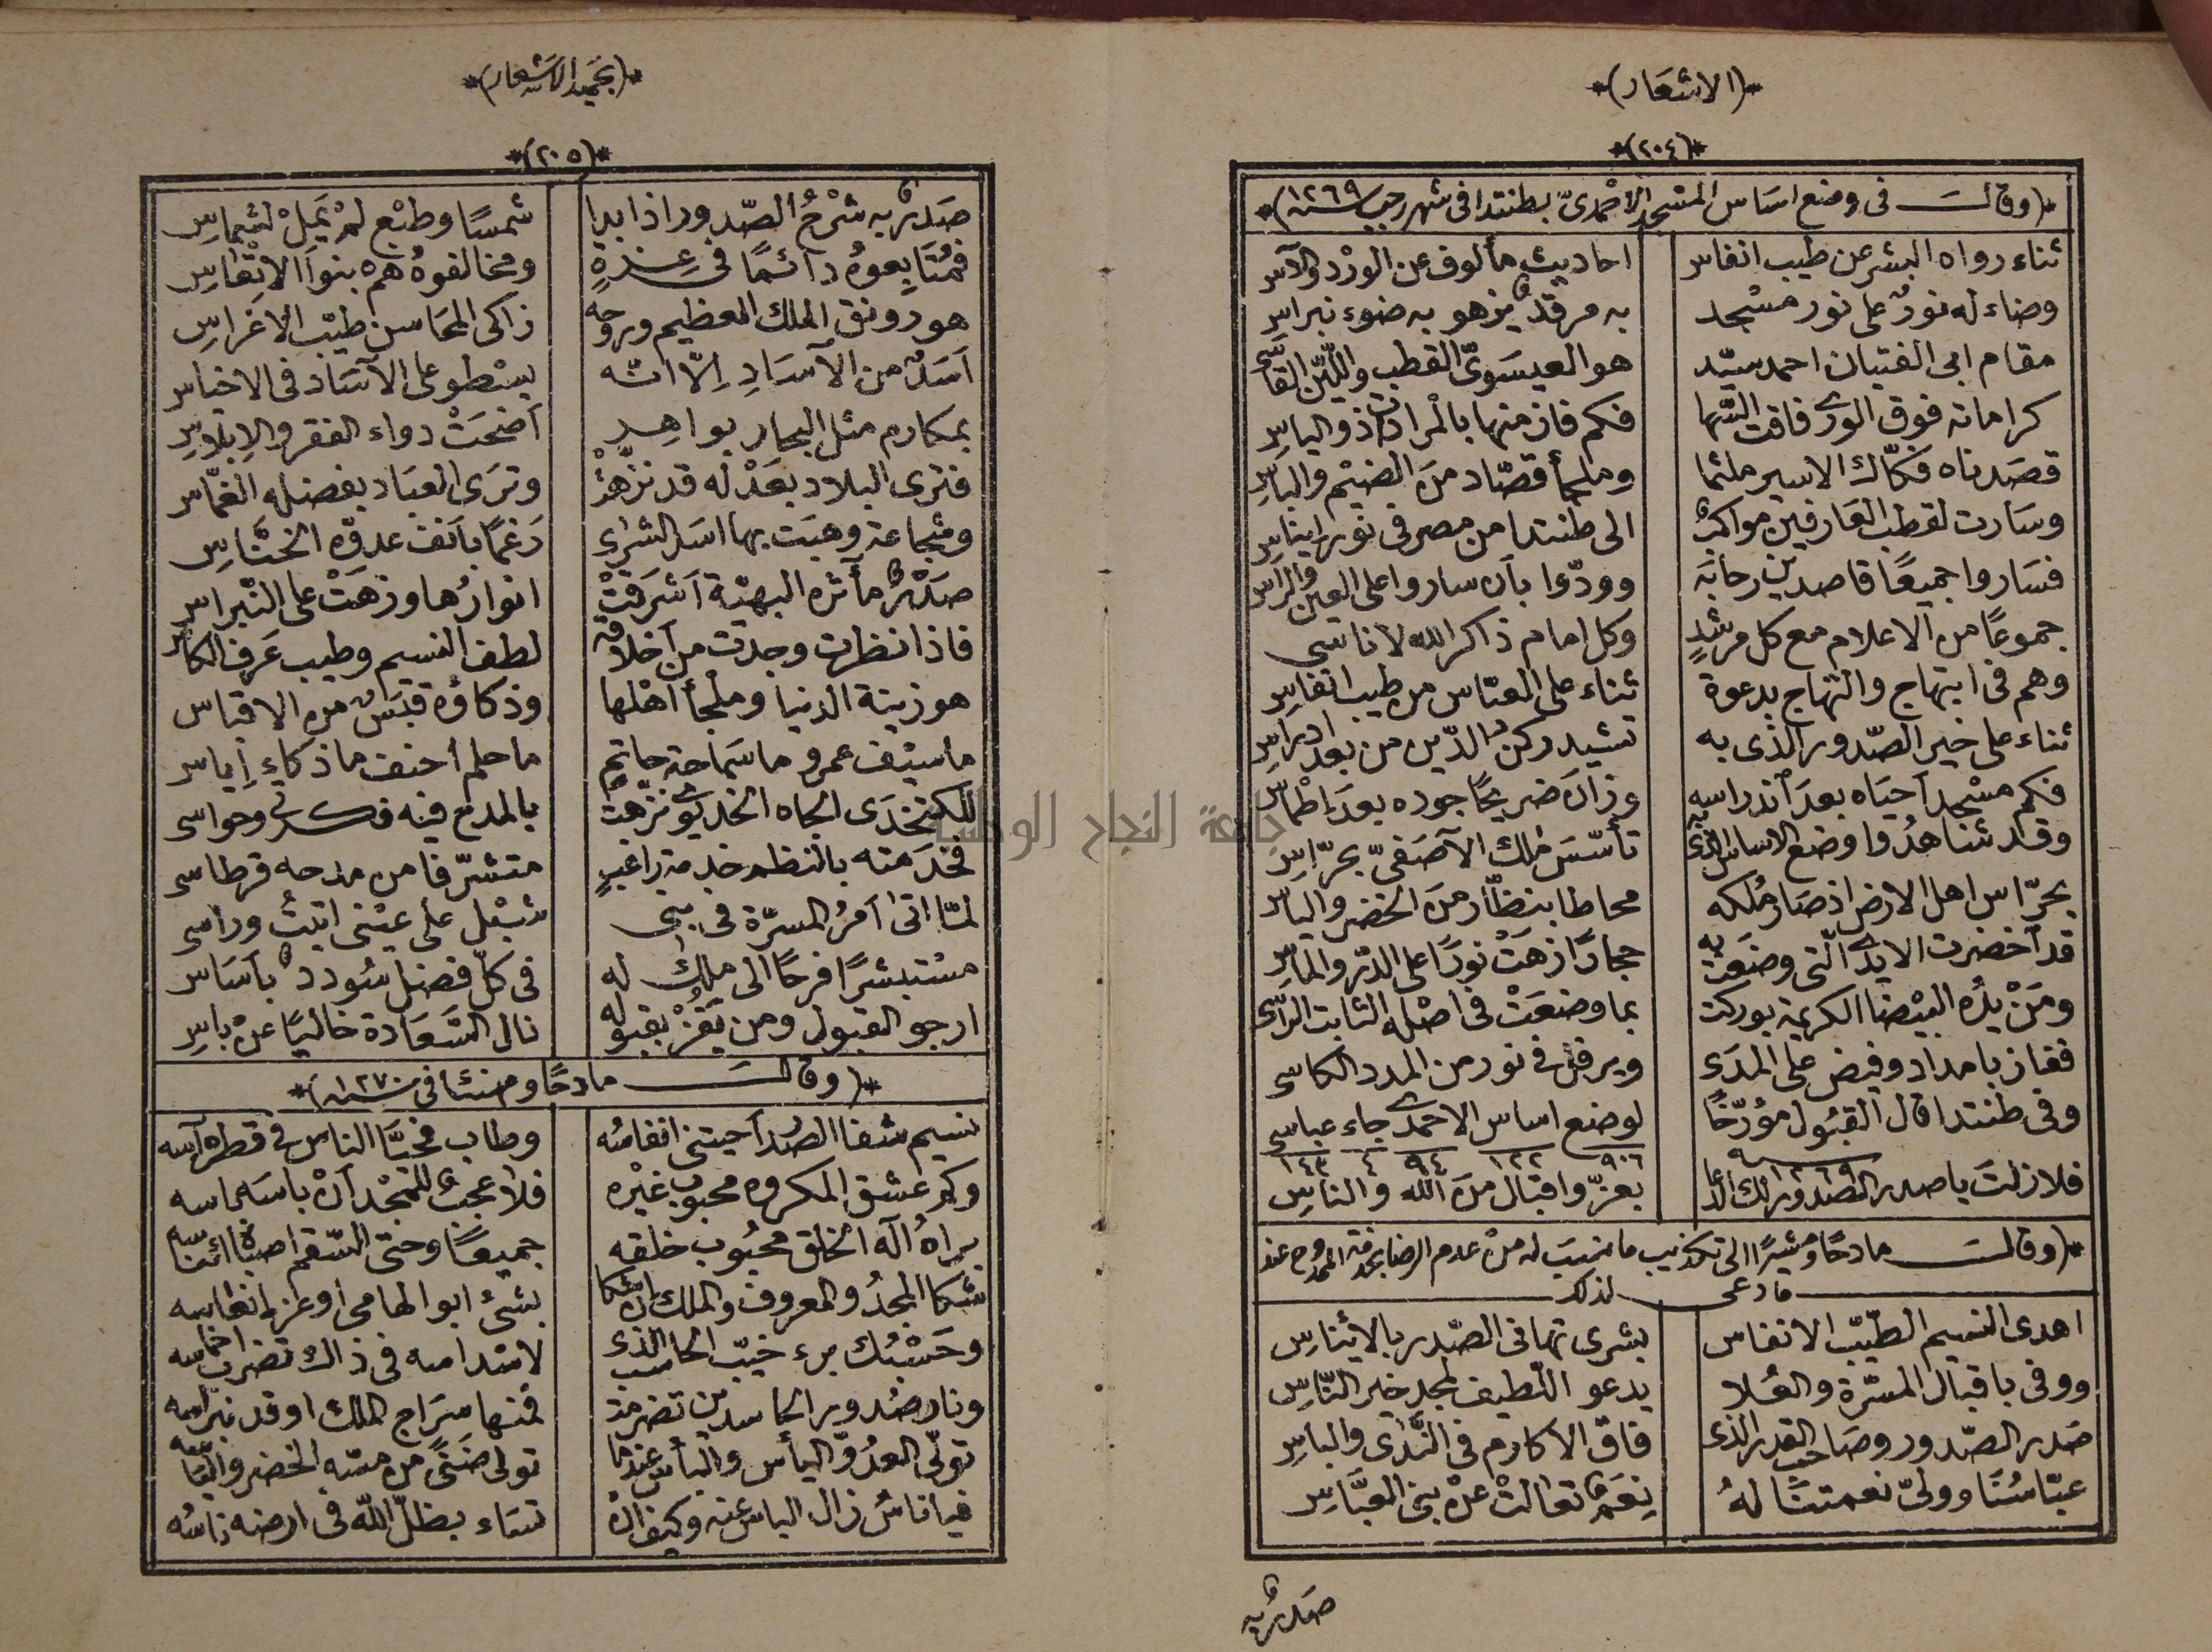 *(الاشعار)*
*(٢٠٤)*
*(وقالــت في وضع اساس المسجد الاحمدىّ بطنتدا فى شهر رجب سنة ١٢٦٩)*
ثناء رواه البشر عن طيب انفاس احاديث مألوف عن الورْد والآس
وضاء له نورٌ على نور مسْجد به مرقدٌ يزهو به ضوء نبراس
مقام ابى الفتيان احمد سيّد هو العيسَوىّ القطب والليّن القاسى
كراماته فوق الورى فاقت السّها فكم فاز منها بالمرادات ذو الياسِ
قصَدناه فكّاك الاسير ملثما وملجأ قصّاد منَ الضيْم والباسِ
وسَارت لقطب العَارفين مواكبٌ الى طنتدا من مصر فى نور ايناسِ
فسَاروا جميعًا قاصدين رحابَه وودّوا بأن ساروا على العين والراسِ
جموعًا من الاعلام مع كل مرشدٍ وكل امام ذاكر الله لا ناسى
وهم فى ابتهاج والتهاج بدعوة ثناء على العبّاس من طيب انفاسِ
ثناء على خير الصّدور الذى به تشيد ركن الدّين من بعد ادراسِ
فكم مسْجد أحيَاه بعدَ اندراسه وزانَ ضريحًا جوده بعدَ اطْماسِ
وقد شاهدُوا وضع الاساس الذى به تأسّسَ ملك الآصَفىّ بحرّاسِ
بحرّاس اهل الارض اذ صَار مُلكه محاطا بنظّار منَ الخضر والياسِ
قد أخضرت الايدى الّتى وضعَت به حجارًا زهَتْ نورًا على الدّر والماسِ
ومَنْ يدُه البيْضا الكريمة بوركت بما وضعَتْ فى اصْله الثابت الراسى
ففاز بامداد وفيض على المدَى ويرقى فى نور من المدد الكاسى
وفى طنتدا قال القبُول مؤرّخًا لوضع اساس الاحمدى جاء عباسى
١٢٦٩ سنة ٩٠٦ ١٢٢ ٩٤ ٤ ١٤٣
فلا زلتَ يا صدر الصّدور لك الدعا بعزّ واقبال منَ الله والناسِ
*(وقالــت مادحًا ومشيرًا الى تكذيب ما نسِبَ له منْ عدم الرضا بخدمة الممدوح عند
ما دعى لذلك
اهدى النسيم الطّيّب الانفاس بشرى تهانى الصّدر بالايناسِ
ووفى باقبال المسّرة والعُلا يدعو اللّطيف لمجد خير النّاسِ
صَدر الصّدور وصَاحب القدر الذى فاقَ الاكارم فى النَّدَى والباسِ
عبّاسُنَا وولىّ نعمتنَا لهُ نِعَمٌ تعالتْ عنْ بنى العبَّاسِ
صَدرٌ به
*(بحميد الاشعار)*
*(٢٠٥)*
صَدرٌ به شرْحُ الصّدور اذا بدا شمسًا وطبْع لمْ يَمِلْ لشماسِ
فمُتَابِعوهُ دائمًا فى عِـزةٍ ومخالفوهُ هم بنوا الاتْعاسِ
هو رونق الملك العظيم وروحه زاكى المحَاسن طيّب الاغراسِ
اَسَدٌ من الآسَادِ اِلّا انّه يسْطو على الآسَاد فى الاخياس
بمكارم مثل البحار بواهـر اَضحَتْ دواء الفقر والاِبلاسِ
فترى البلاد بعَدْله قد نزّهتْ وترَى العبَاد بفضله الغمّاس
وشجاعة وهبَت بها اسَد الشرى رَغمًا بأنف عدوّه الخنَّاس
صَدْرٌ مآثره البهيّة اَشرَقتْ انوارُها وزهَتْ على النّبراس
فاذا نظرت وجدت من اَخلاقه لطف النسيم وطيب عَرف الكاس
هو زينة الدنيا وملْجأ اهْلها وذكاؤه قبَسٌ من الاقباس
ما سيْف عمرو ما سَماحة حاتم ما حلم أحنف ما ذكاءِ اِياس
لكنّ جَدَى الجاه الخديوى نزّهت بالمدح فيه فكرتى وحواسى
فخدَمته بالنظم خدمة راغبٍ متشرّفا من مدحه قرطاسى
لمّا اتى اَمرُ المسرّة فى يدى سَبْل على عيْنى اتيتُ وراسى
مسْتبشرًا فرحًا الى ملِكٍ له فى كلّ فضل سُوددٌ باَسَاس
ارجو القبول ومن يَفُزْ بقبوله نال السّعَادة خاليًا عنْ باسِ
*(وقالــت مادحًا ومهنئا فى سنة ١٢٧٠)*
نسيم شفا الصُدر أحيتنى انفاسُه وطاب محيَّا الناس فى قطره آسه
وكم عشق المكروه محبوب غيْره فلا عجبٌ للمجْد اَنْ باسَه باسه
يراهُ الَه الخلق محبُوب خلقه جميعًا وحتى السّقم
شكا المجدُ والمعروف والملك ان شكا بشئ ابو الهامى اوعز انفاسه
وحَسْبُك برء خيّب الحاسب الذى لاسْداسه فى ذاك تضرب اخماسه
ونار صُدور الحاسدين تضرمت فمنها سرَاج الملك اوقد نبراسه
تولّى العدُوّ اليأس والبأس عندما تولى ضَنًى من مسّه الخضر والياسه
فيا ناسُ زال الباس عنه وكيف ان تسَاء بظلّ اللّه فى ارضه ناسُه
جامعة النجاح الوطنية